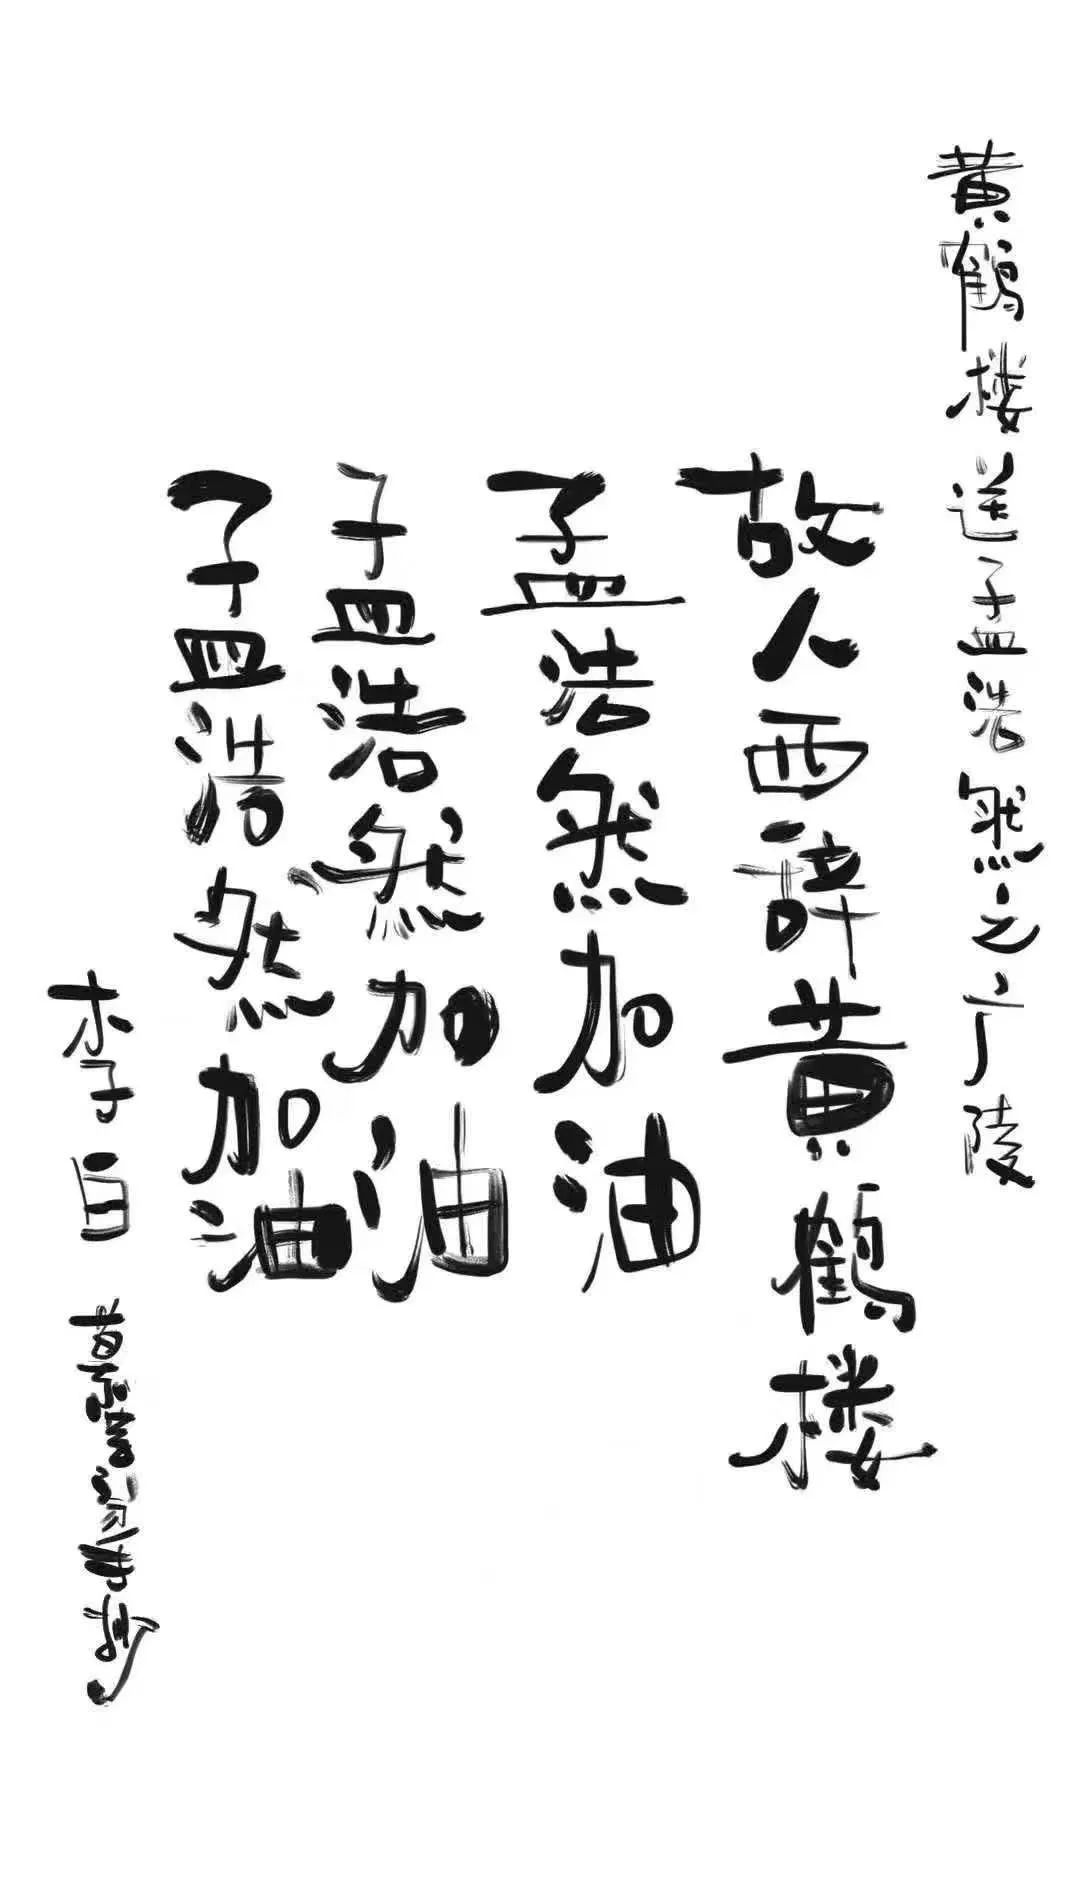 黄鹤楼送孟浩然之广陵
故人西辞黄鹤楼
孟浩然加油
孟浩然加油
孟浩然加油
李白